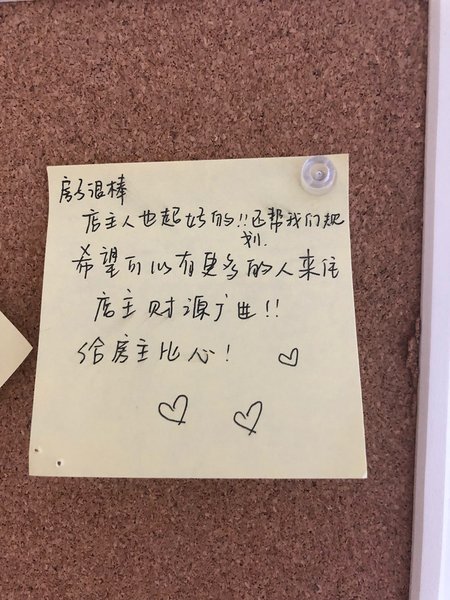 房子很棒
店主人也超好的!!还帮我们规
划.
希望可以有更多的人来住
店主财源广进!!
给房主比心!